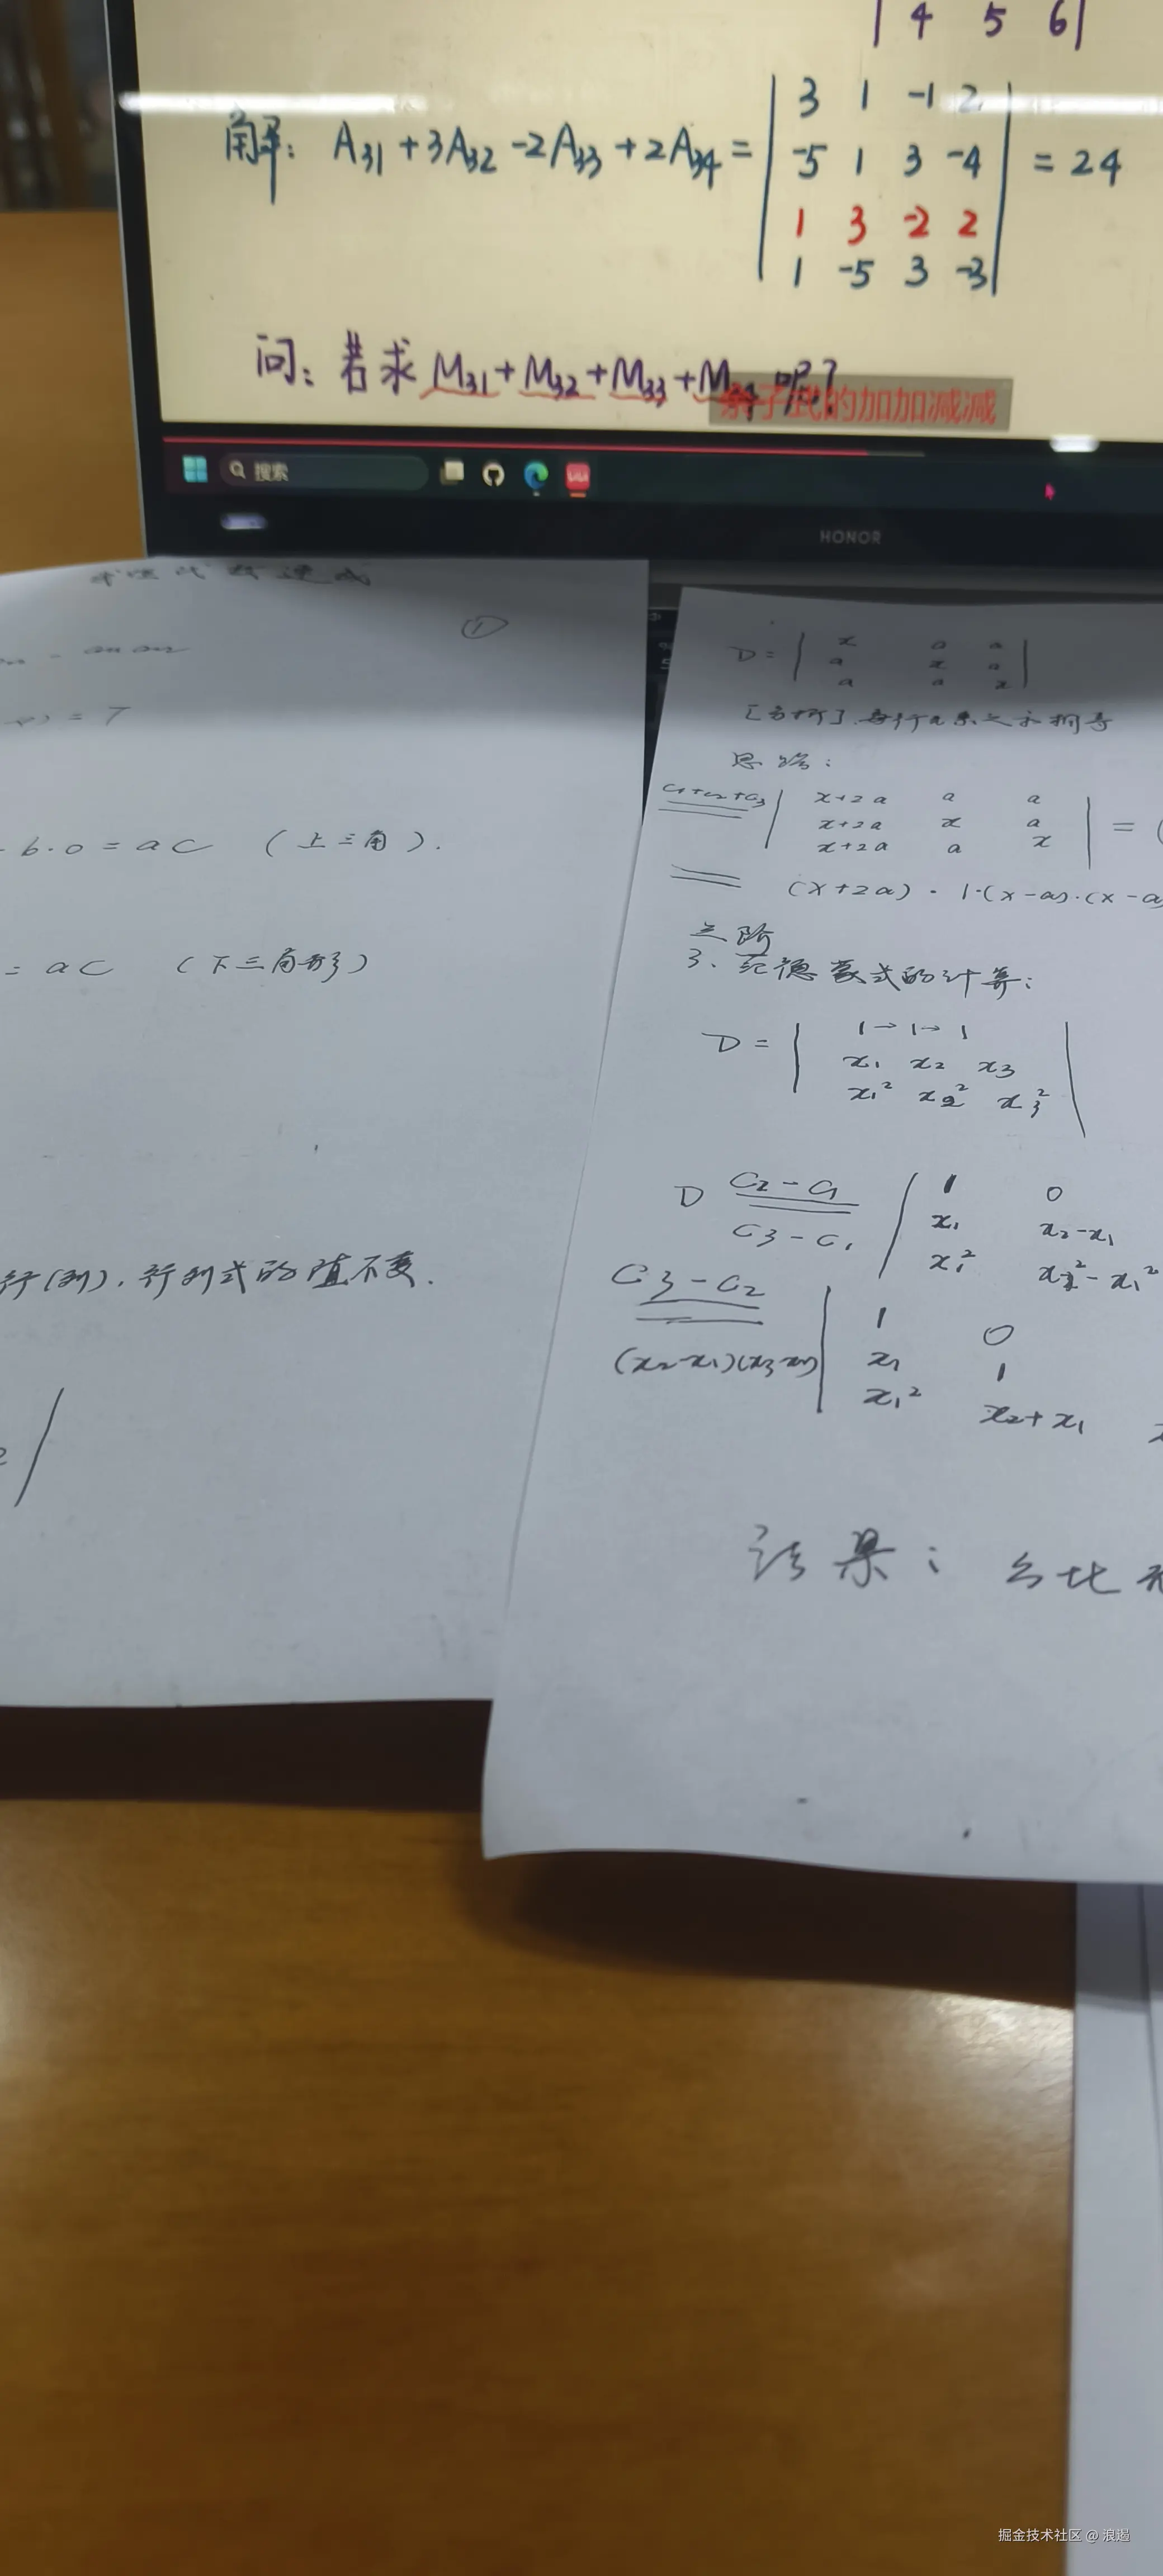 | 4 5 6 |
解: A31 + 3A32 - 2A33 + 2A34 = | 3 1 -1 2 |
| -5 1 3 -4 | = 24
| 1 3 -2 2 |
| 1 -5 3 -3 |
问: 若求 M31 + M32 + M33 + M34 呢?
余子式的加加减减
搜索
HONOR
①
= 7
- b·0 = ac (上三角).
= ac (下三角形)
行(列), 行列式的值不变.
D = | x a a |
| a x a |
| a a x |
思路:
C1+C2+C3 | x+2a a a |
| x+2a x a | = (
| x+2a a x |
(x+2a) · 1·(x-a)·(x-a
三阶
3、范德蒙式的计算:
D = | 1→1→1 |
x1 x2 x3
x1² x2² x3²
D C2-C1 | 1 0
C3-C1 x1 x2-x1
x1² x2²-x1²
C3-C2 | 1 0
(x2-x1)(x3-x1) x1 1
x1² x2+x1
结果:
掘金技术社区 @ 浪遏